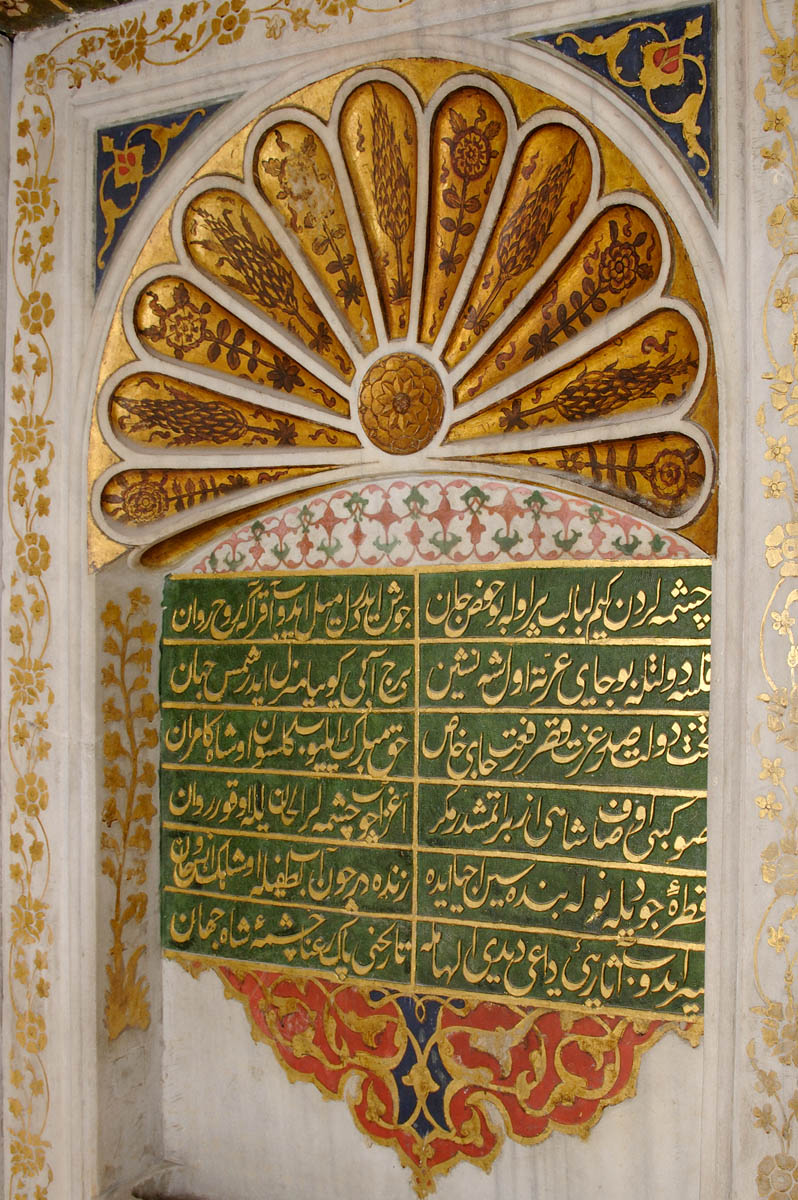 چشمه لردن كیم لبالب پر اوله بو حوض جان جوش ایدر دل میل ایدوب آقر اكه روح روان
قلسه دولتله بو جای عزته اول شه نشین برج آبی كویا منزل ایدر شمس جهان
تخت دولت صدر عزت قصر رفعت جای خاص حق مبارك ایلیوب كلسون او شاه كامران
صو كبی اوصاف شاهی از بر اتمشدر مكر اغز اچوب چشمه لر الحان ایله اوقور روان
قطرهٔ جودیله نوله بنده سین احیا ایده زنده در چون آب لطفیله او شاهك انس و جان
سیر ایدوب آثارینی داعی دیدی الهامله تاریخنی پاك چشمهٔ شاه جهان